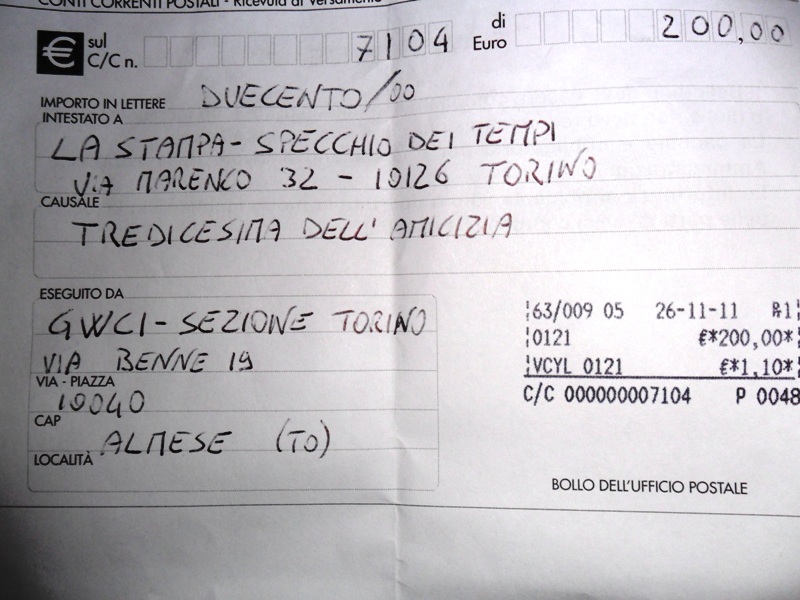 CONTI CORRENTI POSTALI - Ricevuta di Versamento
€ sul C/C n. 7104 di Euro 200,00
IMPORTO IN LETTERE DUECENTO/00
INTESTATO A
LA STAMPA - SPECCHIO DEI TEMPI
VIA MARENCO 32 - 10126 TORINO
CAUSALE
TREDICESIMA DELL' AMICIZIA
ESEGUITO DA
GWCI - SEZIONE TORINO
VIA BENNE 19
VIA - PIAZZA
10040
CAP
ALMESE (TO)
LOCALITÀ
63/009 05 26-11-11 R1
0121 €*200,00*
VCYL 0121 €*1,10*
C/C 000000007104 P 0048
BOLLO DELL'UFFICIO POSTALE